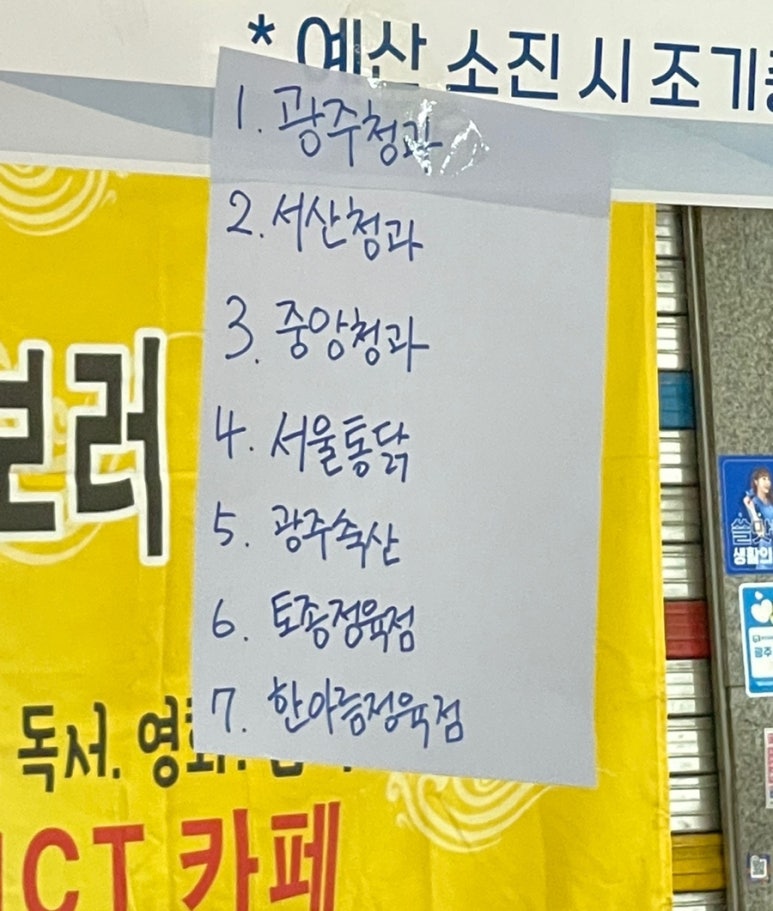 * 예산 소진 시 조기
1. 광주청과
2. 서산청과
3. 중앙청과
4. 서울통닭
5. 광주축산
6. 토종정육점
7. 한아름정육점
러
독서. 영화.
ICT 카페
생활의
광주